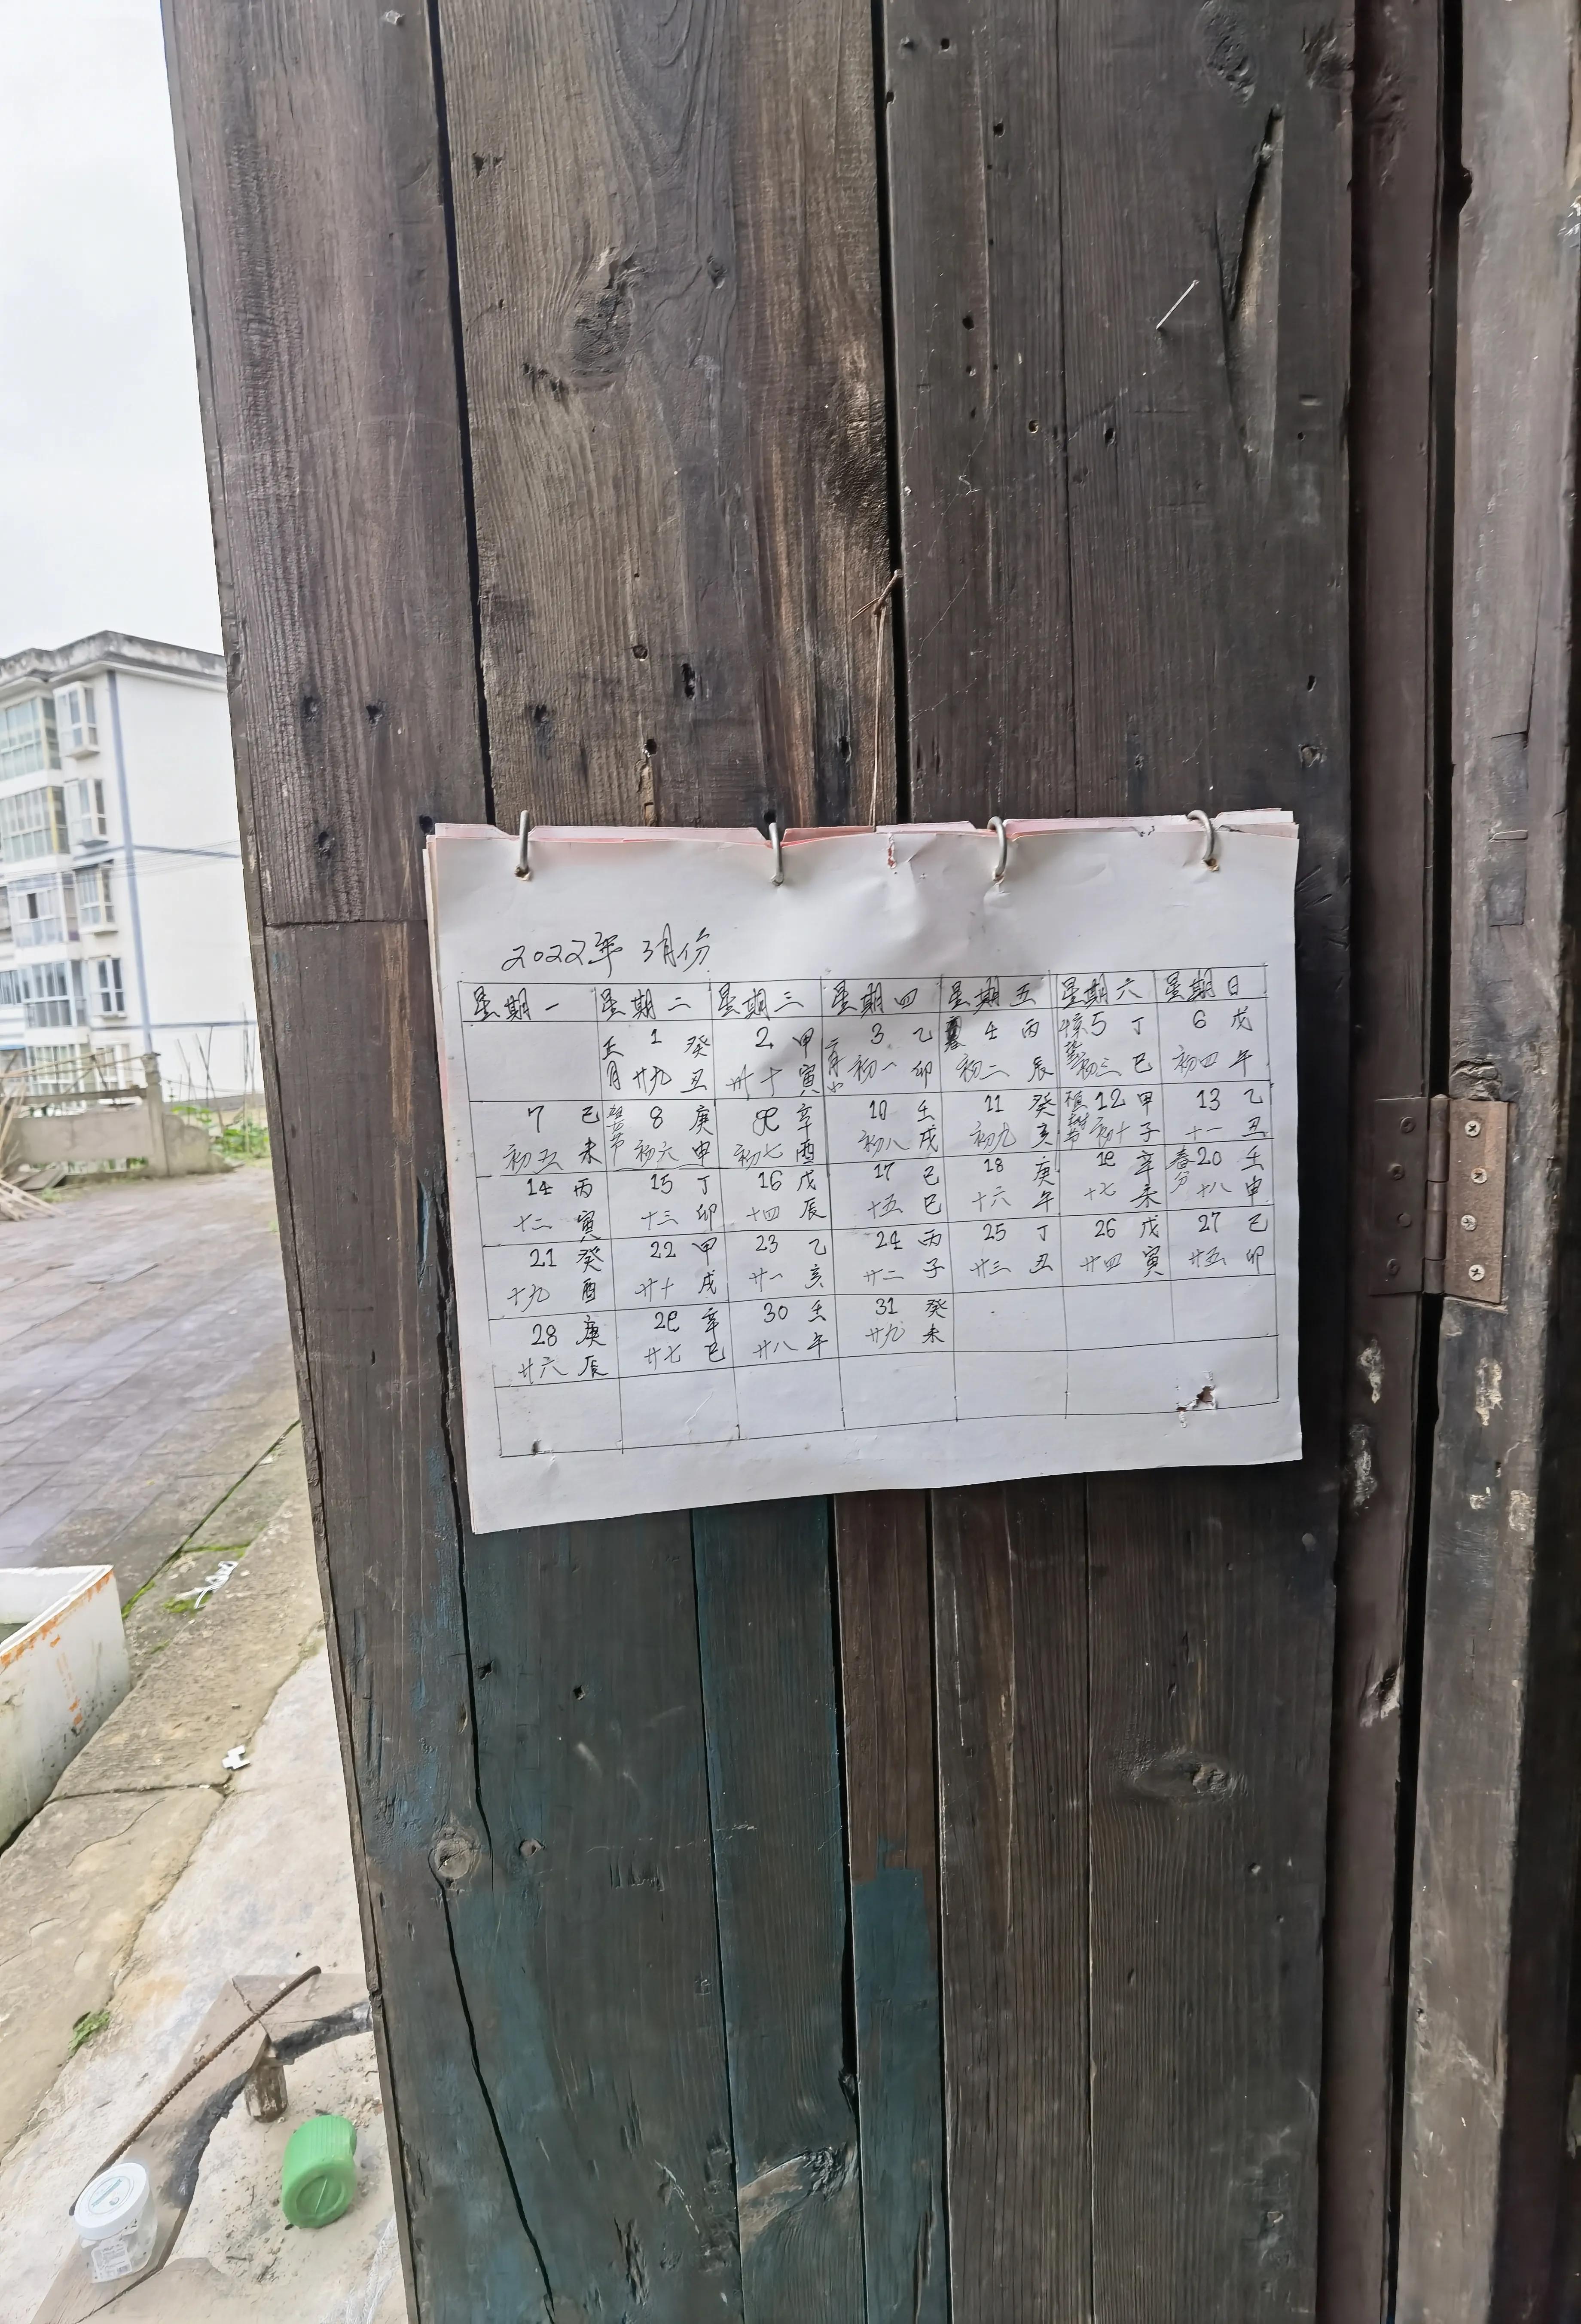 2022年 3月份
星期一 星期二 星期三 星期四 星期五 星期六 星期日
正月 1 癸 2 甲 二月小 3 乙 4 丙 惊蛰 5 丁 6 戊
廿九 丑 卅十 寅 初一 卯 初二 辰 初三 巳 初四 午
7 己 8 庚 9 辛 10 壬 11 癸 植树节 12 甲 13 乙
初五 未 初六 申 初七 酉 初八 戌 初九 亥 初十 子 十一 丑
14 丙 15 丁 16 戊 17 己 18 庚 19 辛 春分 20 壬
十二 寅 十三 卯 十四 辰 十五 巳 十六 午 十七 未 十八 申
21 癸 22 甲 23 乙 24 丙 25 丁 26 戊 27 己
十九 酉 廿十 戌 廿一 亥 廿二 子 廿三 丑 廿四 寅 廿五 卯
28 庚 29 辛 30 壬 31 癸
廿六 辰 廿七 巳 廿八 午 廿九 未